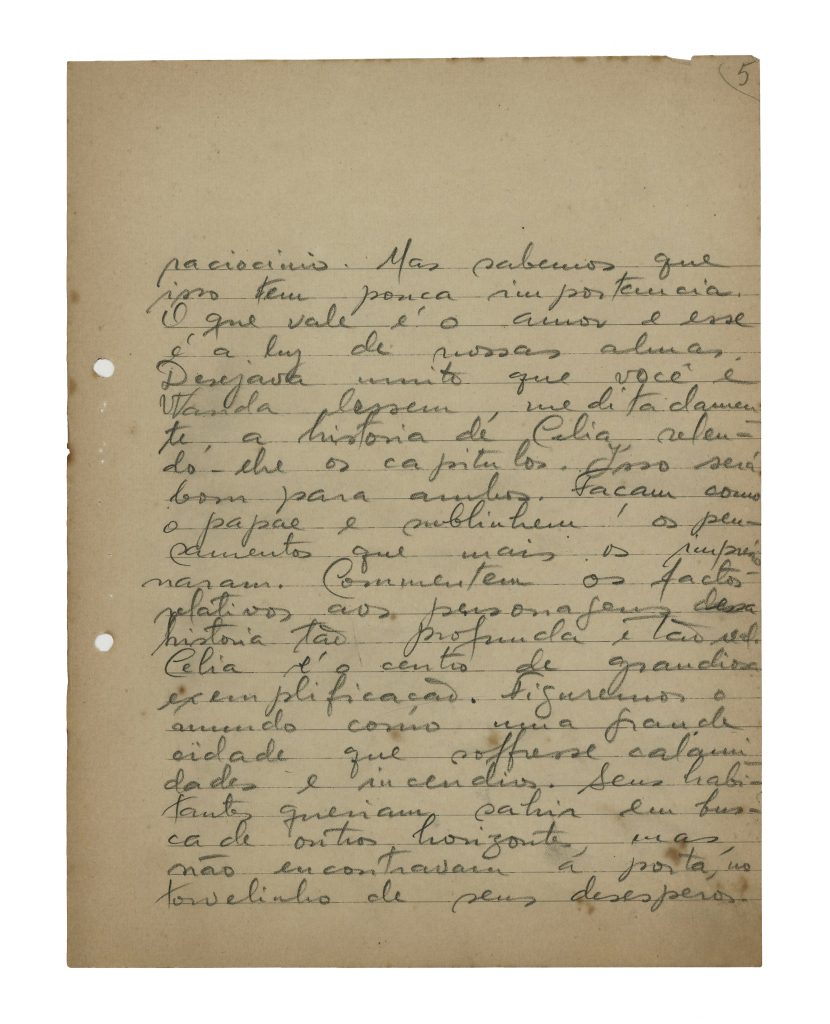 5
raciocinio. Mas sabemos que
isso tem pouca importancia.
O que vale é o amor e esse
é a luz de nossas almas.
Desejava muito que você e
Wanda lessem, meditadamen-
te, a historia de Celia, relen-
do-lhe os capitulos. Isso será
bom para ambos. Façam como
o papae e sublinhem os pen-
samentos que mais os impressio-
naram. Commentem os factos
relativos aos personagens dessa
historia tão profunda e tão
Celia é o centro de grandiosa
exemplificação. Figuremos o
mundo como uma grande
cidade que soffresse calami-
dades e incendios. Seus habi-
tantes queriam sahir em bus-
ca de outros horizontes, mas,
não encontravam a porta, no
torvelinho de seus desesperos.